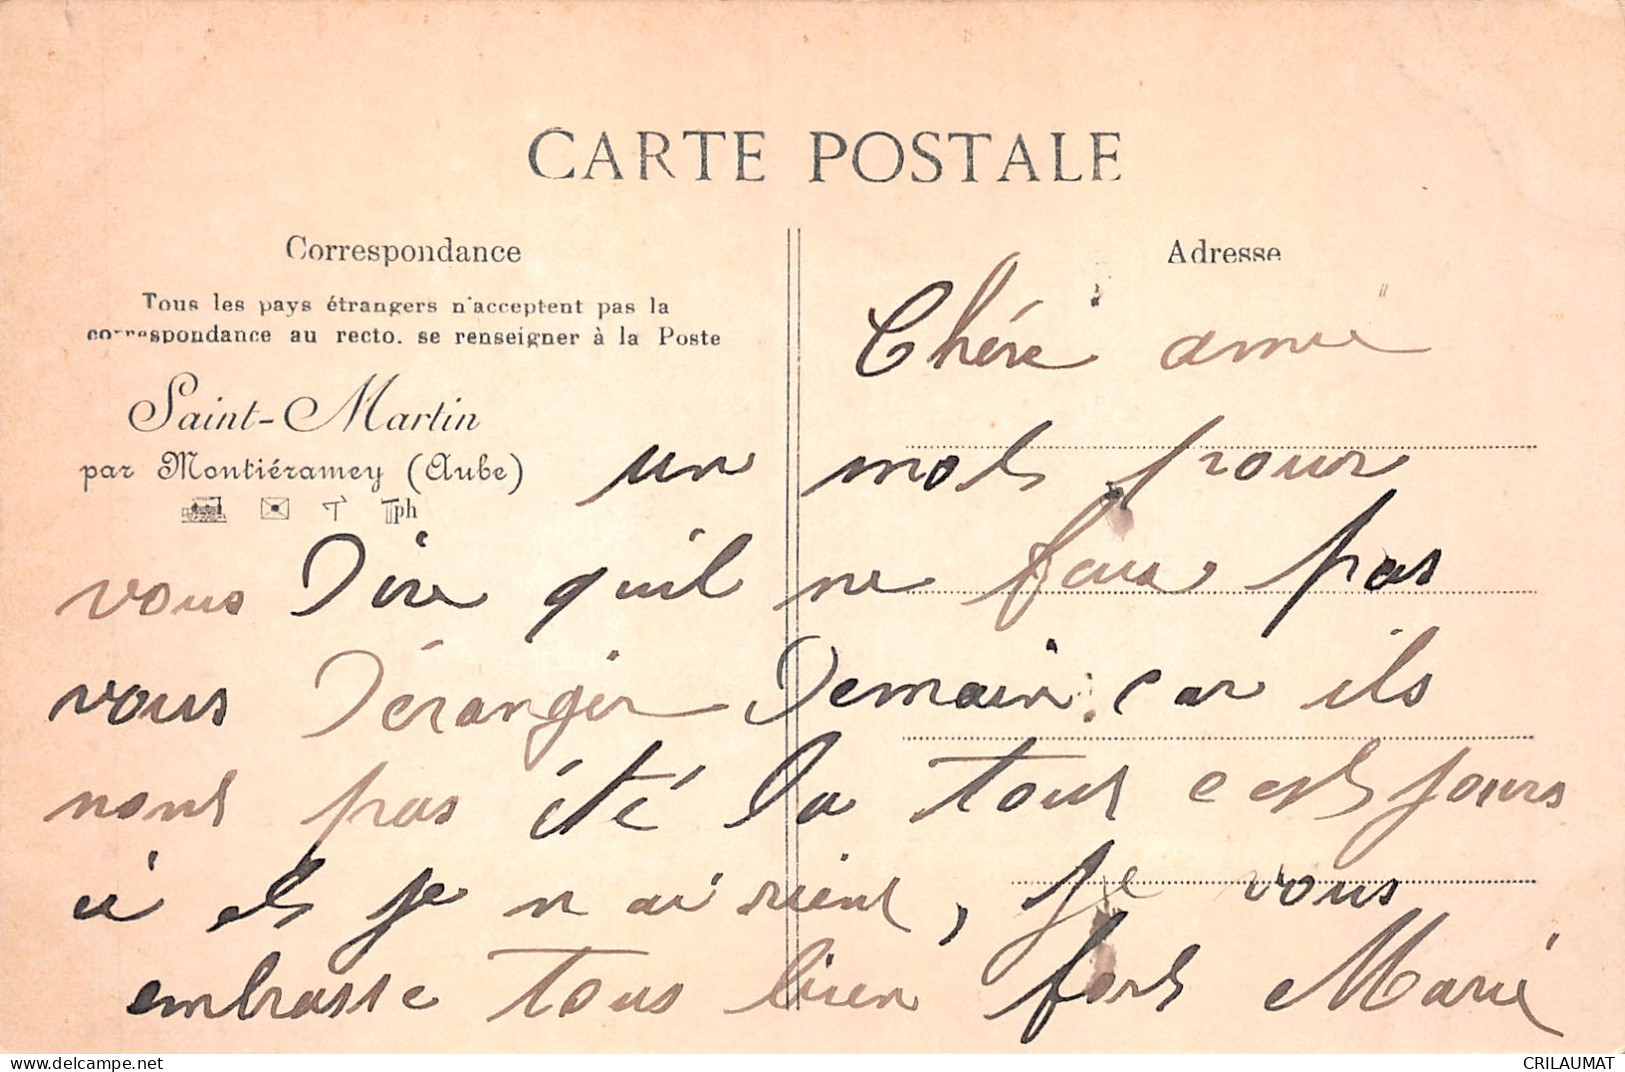 CARTE POSTALE
Correspondance
Adresse
Tous les pays étrangers n'acceptent pas la
correspondance au recto. se renseigner à la Poste
Saint-Martin
par Montiéramey (Aube)
Tph
Chére amie
un mots pour
vous Dire quil ne faus pas
vous Déranger Demain car ils
nont pas été la tout cest jours
ci et je n ai rient, je vous
embrasse tous bien fort Marie
www.delcampe.net
CRILAUMAT